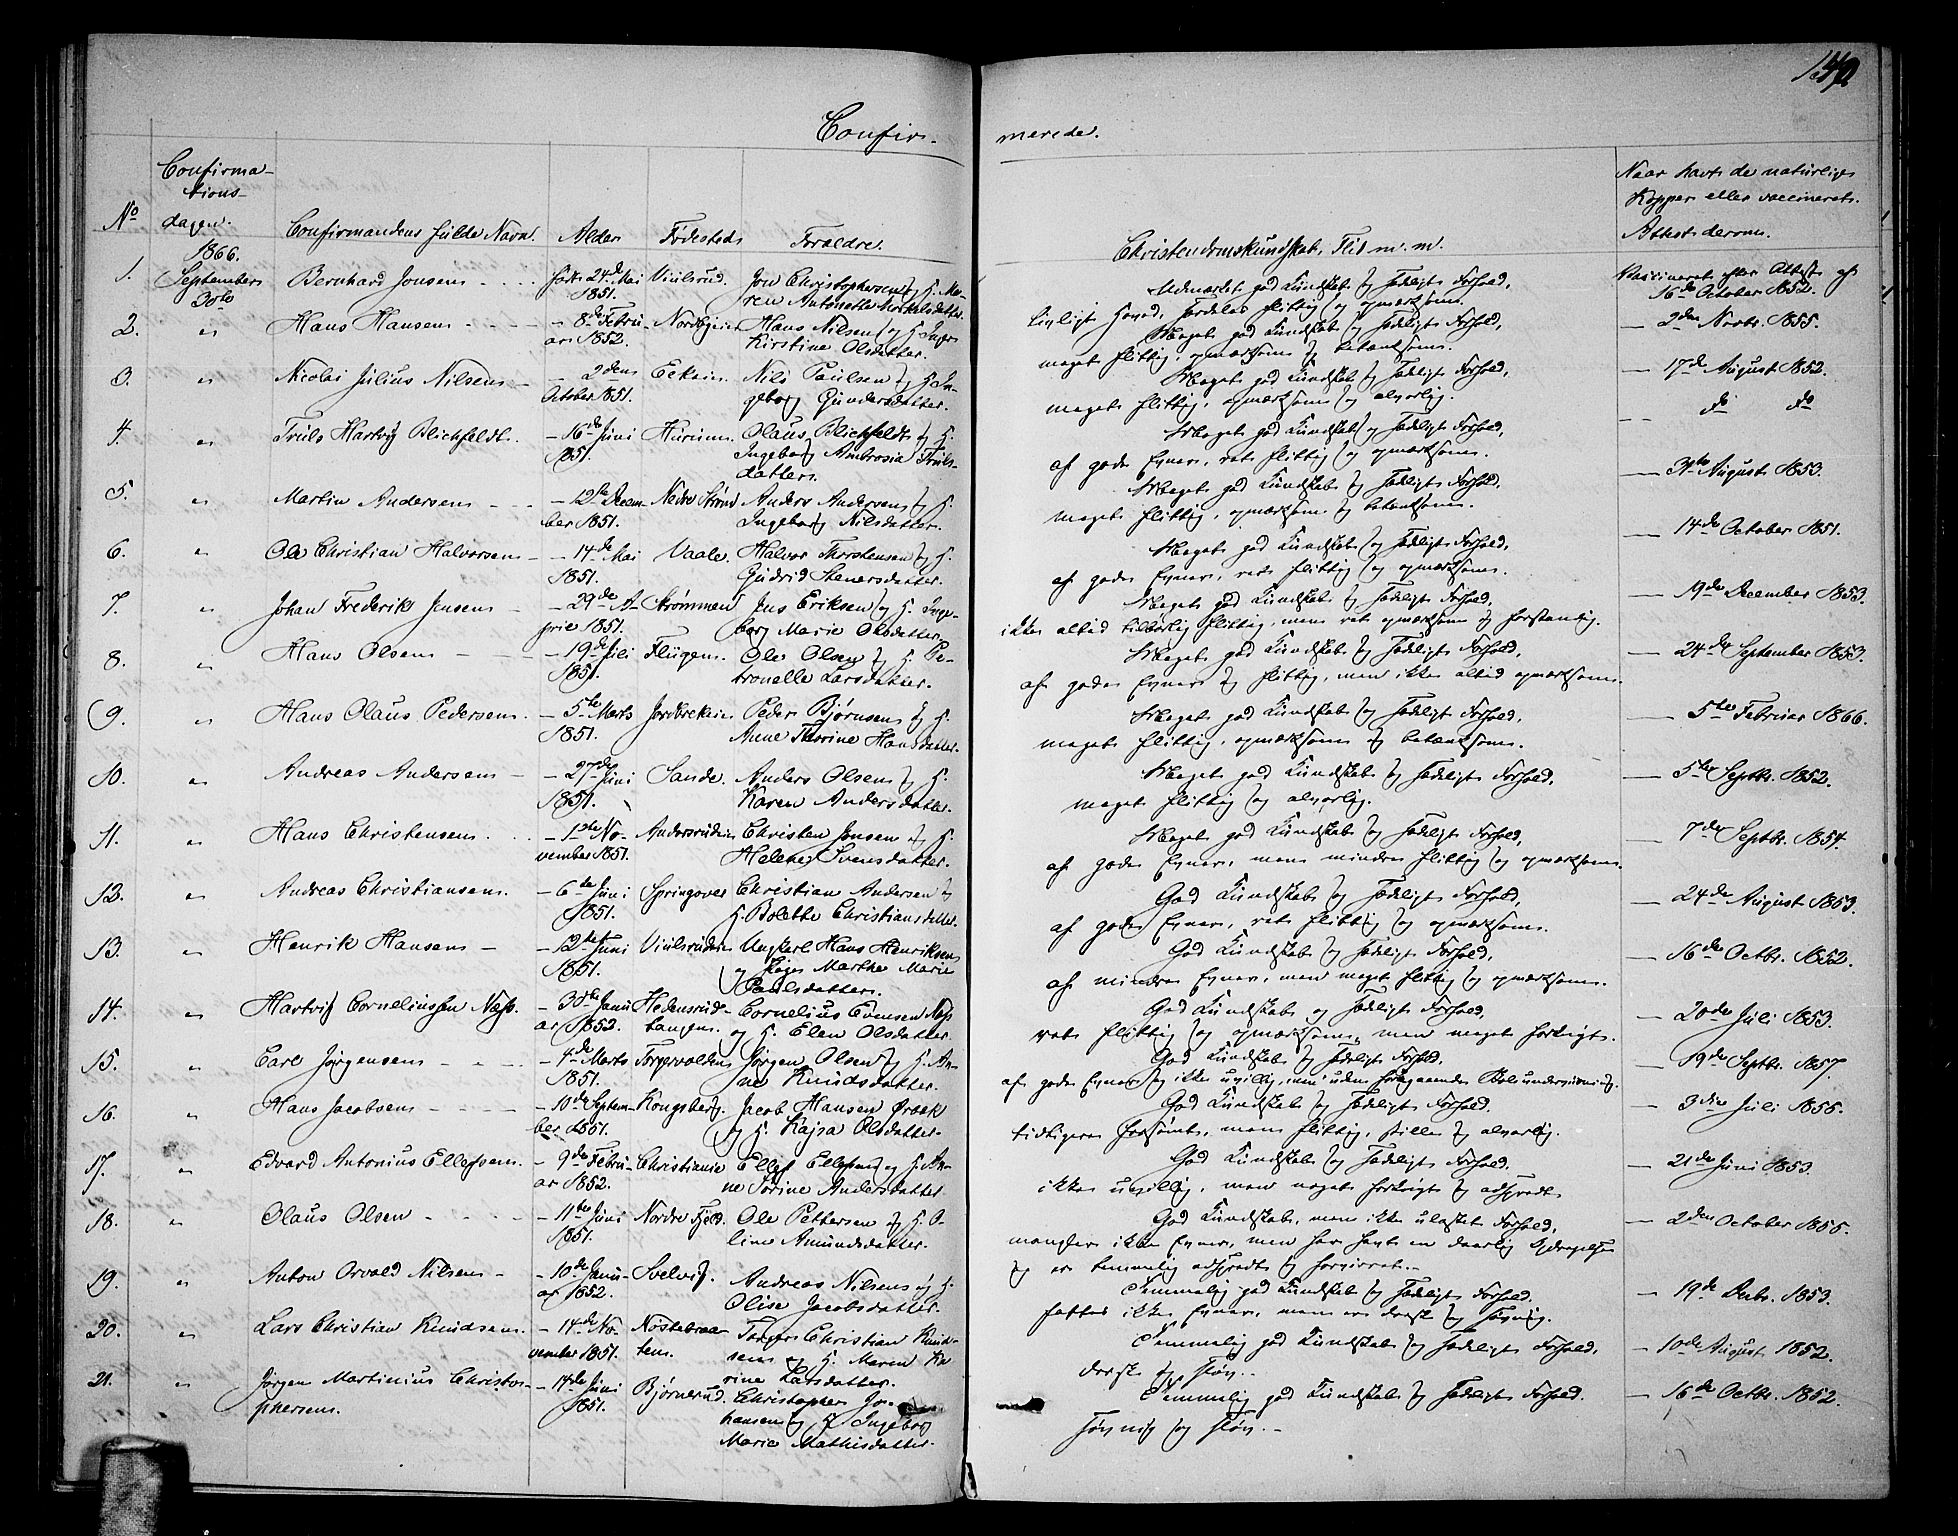 140
Confir-
merede.
No
Confirma-
tions-
dagen.
Confirmandens fulde Navn.
Alder
Fødested
Forældre.
Christendomskundskab, Flid m. m.
Naar havt de naturlige
Kopper eller vaccineret.
Attest derom.
1866.
1. September 30te Bernhard Jonsen født 24de Mai 1851. Jon Christophersen og H. Ma-
ren Antonette
Udmærket god Kundskab og sædeligt Forhold,
Vaccineret efter Attest af
16de October 1852.
2. " Hans Hansen - 8de Febru-
ar 1852.
Hans Nilsen og H. Inger
Kirstine Olsdatter.
Meget god Kundskab og sædeligt Forhold,
meget flittig, opmærksom og betænksom.
— 2den Novbr. 1855.
3. " Nicolai Julius Nilsen - 2den
October 1851.
Nils Paulsen og H. In-
geborg Gundersdatter.
Meget god Kundskab og sædeligt Forhold,
meget flittig, opmærksom og alvorlig.
— 17de August 1852.
4. " Truls Hartvig Blichfeldt. - 16de Juni
1851.
Hurum.
Olaus Blichfeldt og H.
Ingeborg Ambrosia Truls-
datter.
Meget god Kundskab og sædeligt Forhold,
af gode Evner, ret flittig og opmærksom.
— do do
5. " Martin Andersen - 12te Decem-
ber 1851.
Nedre Strand
Anders Andersen og H.
Ingeborg Nilsdatter.
Meget god Kundskab og sædeligt Forhold,
meget flittig, opmærksom og betænksom.
— 31te August 1853.
6. " Ole Christian Halvorsen - 14de Mai
1851.
Vaale.
Halvor Thorstensen og H.
Gudrid Stenersdatter.
Meget god Kundskab og sædeligt Forhold,
af gode Evner, ret flittig og opmærksom.
— 14de October 1851.
7. " Johan Frederik Jensen - 29de A-
pril 1851.
Strømmen
Jens Eriksen og H. Inge-
borg Marie Olsdatter.
Meget god Kundskab og sædeligt Forhold,
ikke altid tilbørlig flittig, men ret opmærksom og forstandig.
— 19de December 1853.
8. " Hans Olsen - 19de Juli
1851.
Ole Olsen og H. Pe-
tronelle Larsdatter.
Meget god Kundskab og sædeligt Forhold,
af gode Evner og flittig, men ikke altid opmærksom.
— 24de September 1853.
9. " Hans Olaus Pedersen. - 5te Marts
1851.
Peder Bjørnsen og H.
Anne Thorine Hansdatter.
Meget god Kundskab og sædeligt Forhold,
meget flittig, opmærksom og betænksom.
— 5te Februar 1866.
10. " Andreas Andersen - 27de Juni
1851.
Sande.
Anders Olsen og H.
Karen Andersdatter.
Meget god Kundskab og sædeligt Forhold,
meget flittig og alvorlig.
— 5te Septbr. 1852.
11. " Hans Christensen. - 1ste No-
vember 1851.
Christen Jensen og H.
Helene Svensdatter.
Meget god Kundskab og sædeligt Forhold,
af gode Evner, men mindre flittig og opmærksom.
— 7de Septbr. 1854.
12. " Andreas Christiansen. - 6te Juni
1851.
Christian Andersen og
H. Bolette Christiansdatter.
God Kundskab og sædeligt Forhold,
af gode Evner, ret flittig og opmærksom.
— 24de August 1853.
13. " Henrik Hansen - 12te Juni
1851.
Ungkarl Hans Henriksen
og Pige Marthe Marie
Paulsdatter.
God Kundskab og sædeligt Forhold,
af mindre Evner, men meget flittig og opmærksom.
— 16de Octbr. 1852.
14. " Hartvig Corneliussen Næss. - 30te Janu-
ar 1852.
Hedensrud-
tangen.
Cornelius Evensen Næs
og H. Elen Olsdatter.
God Kundskab og sædeligt Forhold,
ret flittig og opmærksom, men meget forknyt.
— 20de Juli 1853.
15. " Carl Jørgensen - 4de Marts
1851.
Jørgen Olsen og H. An-
ne Knudsdatter.
God Kundskab og sædeligt Forhold,
— 19de Septbr. 1857.
16. " Hans Jacobsen - 10de Septem-
ber 1851.
Kongsberg.
Jacob Hansen Ørbek
og H. Kajsa Olsdatter.
God Kundskab og sædeligt Forhold.
tidligere forsømt, men flittig, stille og alvorlig.
— 3die Juli 1855.
17. " Edvard Antonius Ellefsen. - 9de Febru-
ar 1852.
Christiania
Ellef Ellefsen og H. An-
ne Sorine Andersdatter.
God Kundskab og sædeligt Forhold.
ikke uvillig, men noget forknyt og adspredt.
— 21de Juni 1853.
18. " Olaus Olsen - 11te Juni
1851.
Nordre Fjeld.
Ole Pettersen og H. O-
line Amundsdatter.
God Kundskab, men ikke ulastet Forhold,
mangler ikke Evner, men har havt en daarlig Opdragelse
og er temmelig adspredt og forvirret.
— 2den October 1855.
19. " Anton Orvald Nilsen - 10de Janu-
ar 1852.
Svelvig.
Andreas Nilsen og H.
Olise Jacobsdatter.
Temmelig god Kundskab og sædeligt Forhold.
fattes ikke Evner, men er dorsk og søvnig.
— 19de Decbr. 1853.
20. " Lars Christian Knudsen. - 14de No-
vember 1851.
Torger Christian Knud-
sen og H. Maren Ka-
rine Larsdatter.
Temmelig god Kundskab og sædeligt Forhold,
dorsk og sløv.
— 10de August 1852.
21. " Jørgen Martinius Christo-
phersen.
- 14de Juni
1851.
Bjørnerud
Christopher Jo-
hansen og H. Ingeborg
Marie Mathisdatter.
Temmelig god Kundskab og sædeligt Forhold.
søvnig og sløv.
— 16de Octbr. 1852.